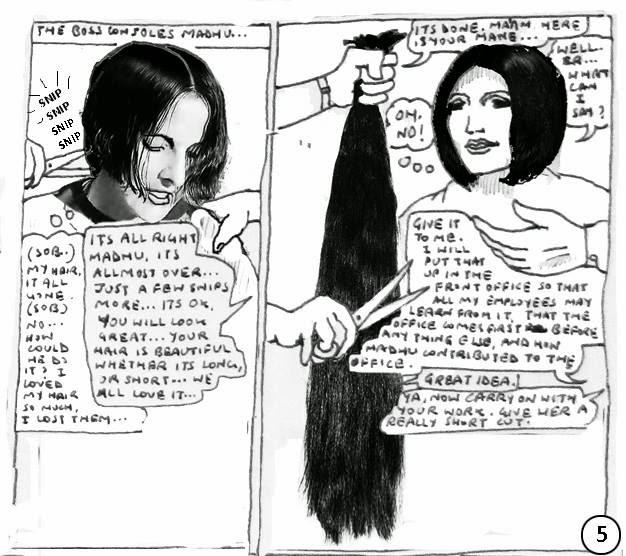 THE BOSS CONSOLES MADHU...
SNIP
SNIP
SNIP
SNIP
(SOB..)
MY HAIR,
IT ALL
GONE.
(SOB)
NO...
HOW
COULD
HE DO
IT? I
LOVED
MY HAIR
SO MUCH,
I LOST THEM...
ITS ALL RIGHT
MADHU, ITS
ALLMOST OVER...
JUST A FEW SNIPS
MORE... ITS OK,
YOU WILL LOOK
GREAT... YOUR
HAIR IS BEAUTIFUL
WHETHER ITS LONG,
OR SHORT... WE
ALL LOVE IT...
ITS DONE. MA'AM. HERE
IS YOUR MANE...
WELL.
ER...
WHAT
CAN
I
SAY?
OH,
NO!
GIVE IT
TO ME.
I WILL
PUT THAT
UP IN THE
FRONT OFFICE SO THAT
ALL MY EMPLOYEES MAY
LEARN FROM IT, THAT THE
OFFICE COMES FIRST BEFORE
ANY THING ELSE, AND HOW
MADHU CONTRIBUTED TO THE
OFFICE.
GREAT IDEA.
YA, NOW CARRY ON WITH
YOUR WORK. GIVE HER A
REALLY SHORT CUT.
5